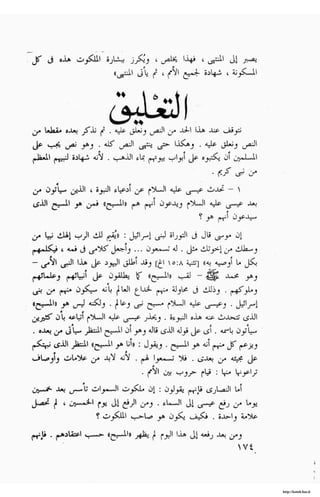 يصير إلى المنتهى ، فهذا يخلص ، ويُكرز ببشارة الملكوت هذه في كل
المسكونة ، شهادة لجميع الأمم ، ثم يأتي المنتهى»
التعليق
نتوقف عند هذا الحد من النص ونعلق عليه . ثم نذكر بعده مقطعا من
النص ونعلق عليه . وهكذا حتى ينتهي النص كله . وهو نص يجب على
المسلمين أن يكتبوه على أبواب بيوتهم بماء الذهب . لأنه شهادة لنبيهم العظيم
من نبى كريم .
١ – تحدث عيسى عليه السلام عن أدعياء النبوة ، الذين سيأتون من
بعد عيسى عليه السلام ويدعون أنهم هم «المسيح» فمن هو المسيح الذى
سيدعون أنهم هو ؟
إن موسى قال في التوراة لبنى إسرائيل : «يُقيم لك الرب إلهك نبيا من
وسطك من إخوتك مثلى . له تسمعون ... وأجعل كلامى فى فمه ، فيكلمهم
بكل ما أوصيه به» [تثنية ١٨:١٥ إلخ] وقد أطلق اليهود على هذا النبى الآتى –
وهو محمد ﷺ – لقب «المسيح» كما يطلقون على أنبيائهم وعلمائهم
وملوكهم . وذلك فى محاولة لإيهام العالم بأنه سيكون منهم من بنى
إسرائيل . وعيسى عليه السلام مسيح نبى وعالم . ولكنه ليس هو «المسيح»
الذى تتحدث عنه هذه النبوة . ويحذر عيسى عليه السلام أتباعه بأن كثيرين
سيأتون باسمه . أى على القول الذى قاله وهو أن المسيح المنتظر سيأتى من بعده .
ويزعم كل منهم أنه هو المسيح . ويقول : «أنا هو» المسيح المنتظر الذى يبشركم
بمجيئه على من بعدى . فلا تسمعوا لهم . لأنه لابد من علامات وأوصاف
تراعونها ، منها : قيام حروب بين الأمم .
٢ – أما النصارى فإنهم يقولون : إن ملكوت السموات تأسس بعد خمسين
يوما من رفع عيسى إلى السماء . ومن الرفع إلى يوم الخمسين ، لم تحصل
علامة واحدة . فكيف يكون هو صاحب الملكوت ؟
ومن بعد رفعه إلى هذا اليوم لم يظهر «المسيح» حسب اعتقادهم . فإنهم
١٧٤
http://kotob.has.it